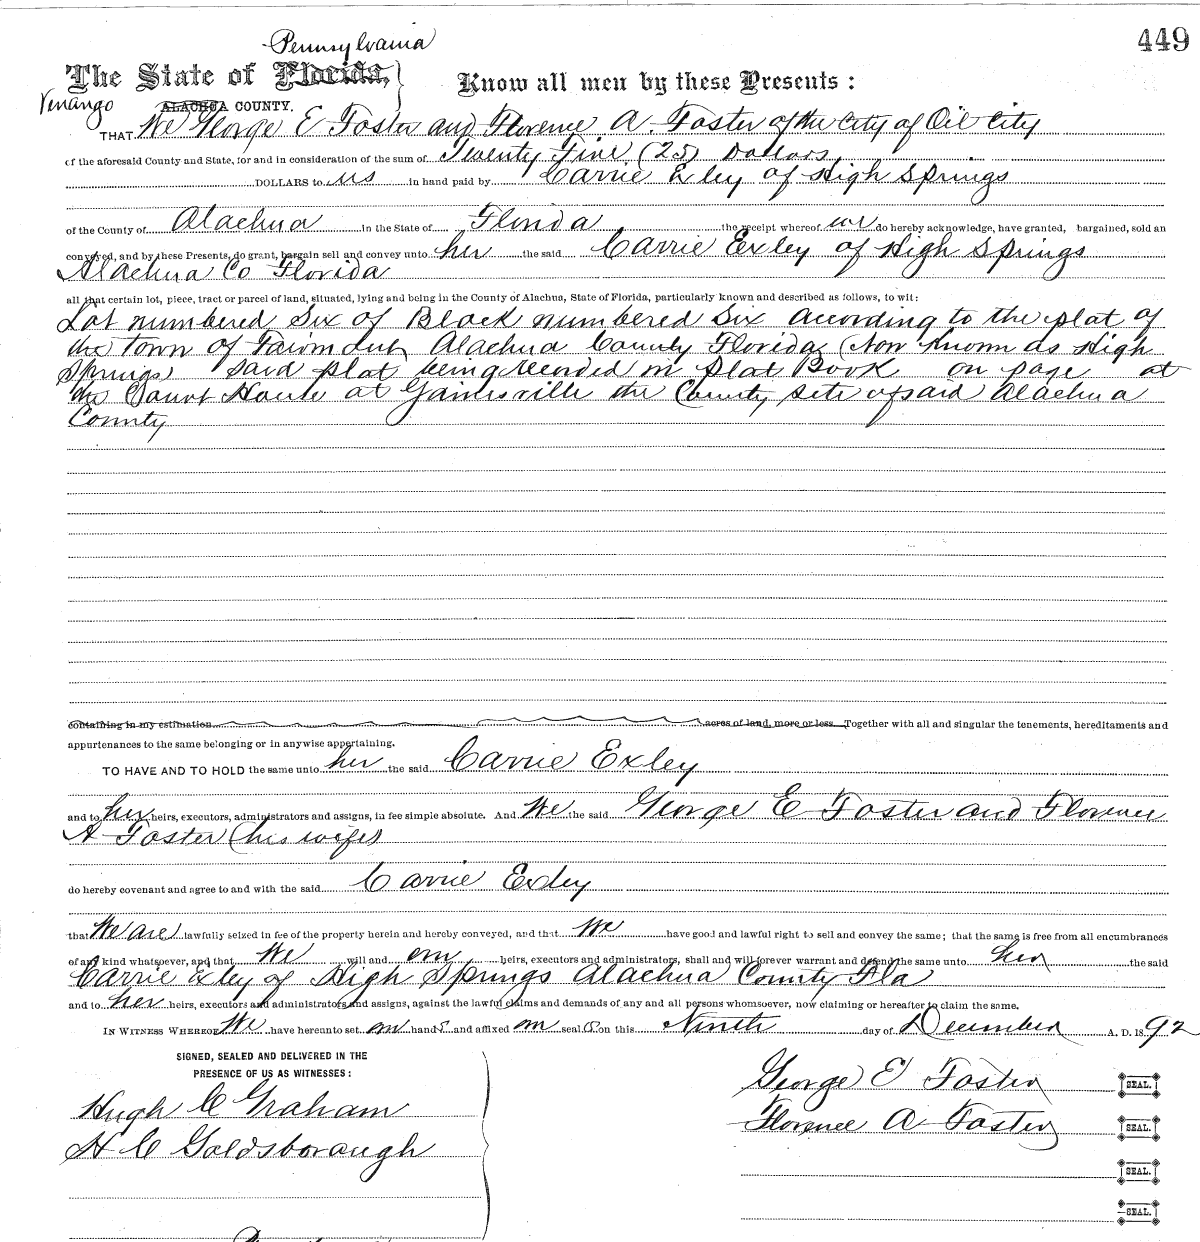 449
Pennsylvania
The State of Florida,
Know all men by these Presents:
Venango
ALACHUA COUNTY.
THAT We George E Foster and Florence A. Foster of the City of Oil City
of the aforesaid County and State, for and in consideration of the sum of Twenty Five (25) Dollars
DOLLARS to us in hand paid by Carrie Exley of High Springs
of the County of Alachua in the State of Florida the receipt whereof we do hereby acknowledge, have granted, bargained, sold an
conveyed, and by these Presents, do grant, bargain sell and convey unto her the said Carrie Exley of High Springs
Alachua Co Florida
all that certain lot, piece, tract or parcel of land, situated, lying and being in the County of Alachua, State of Florida, particularly known and described as follows, to wit:
Lot numbered Six of Block numbered Six according to the plat of
the town of Alachua County Florida (Now Known as High
Springs) said plat being recorded in Plat Book on page at
the Court House at Gainesville the County site of said Alachua
County
containing in my estimation acres of land, more or less. Together with all and singular the tenements, hereditaments and
appurtenances to the same belonging or in anywise appertaining.
TO HAVE AND TO HOLD the same unto her the said Carrie Exley
and to her heirs, executors, administrators and assigns, in fee simple absolute. And We the said George E Foster and Florence
A Foster (his wife)
do hereby covenant and agree to and with the said Carrie Exley
that We are lawfully seized in fee of the property herein and hereby conveyed, and that We have good and lawful right to sell and convey the same; that the same is free from all encumbrances
of any kind whatsoever, and that We will and our heirs, executors and administrators, shall and will forever warrant and defend the same unto her the said
Carrie Exley of High Springs Alachua County Fla
and to her heirs, executors and administrators and assigns, against the lawful claims and demands of any and all persons whomsoever, now claiming or hereafter to claim the same.
IN WITNESS WHEREOF We have hereunto set our hands and affixed our seals on this Ninth day of December A. D. 1892
SIGNED, SEALED AND DELIVERED IN THE
PRESENCE OF US AS WITNESSES:
George E Foster SEAL.
Hugh C Graham
Florence A Foster SEAL.
H C Goldsborough
SEAL.
SEAL.